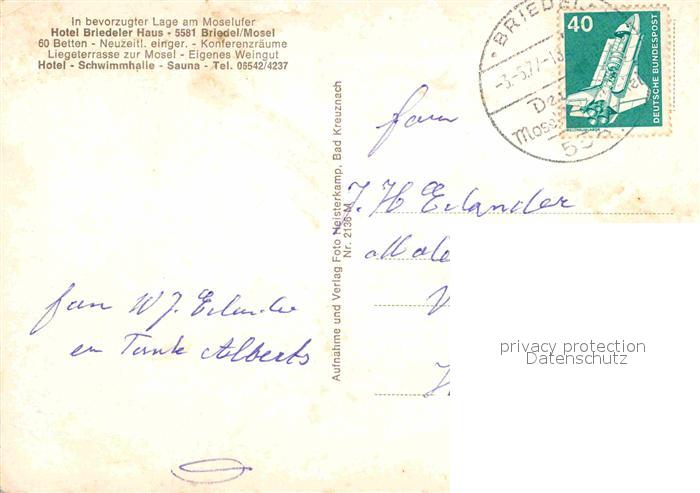 In bevorzugter Lage am Moselufer
Hotel Briedeler Haus - 5581 Briedel/Mosel
60 Betten - Neuzeitl. einger. - Konferenzräume
Liegeterrasse zur Mosel - Eigenes Weingut
Hotel - Schwimmhalle - Sauna - Tel. 06542/4237
BRIEDEL
-3.-5.77-1
Mosel
40
DEUTSCHE BUNDESPOST
Aufnahme und Verlag Foto Heisterkamp, Bad Kreuznach
Nr. 2136 M
fam
J. H Erlander
fam W J. Erlander
en Tante Alberts
privacy protection
Datenschutz